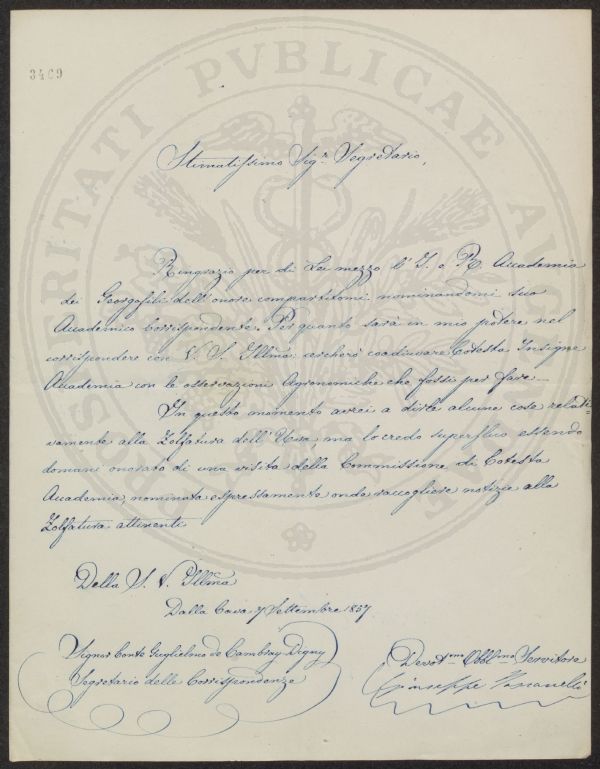 3469
PROSPERITATI PVBLICAE AVGENDAE
Stimatissimo Sigr. Segretario,
Ringrazio per di Lei mezzo l'I. e R. Accademia
dei Georgofili dell'onore compartitomi nominandomi suo
Accademico Corrispondente. Per quanto sarà in mio potere nel
corrispondere con V. S. Illma cercherò coadiuvare Cotesta Insigne
Accademia con le osservazioni Agronomiche che fossi per fare.
In questo momento avrei a dirle alcune cose relati-
vamente alla Zolfatura dell'Uva, ma lo credo superfluo essendo
domani onorato di una visita della Commissione di Cotesta
Accademia, nominata espressamente onde raccogliere notizie alla
Zolfatura attinenti.
Della S. V. Illma
Dalla Cava 7 Settembre 1857
Signor Conte Guglielmo de Cambray Digny
Segretario delle Corrispondenze
Devotmo Obblmo Servitore
Giuseppe